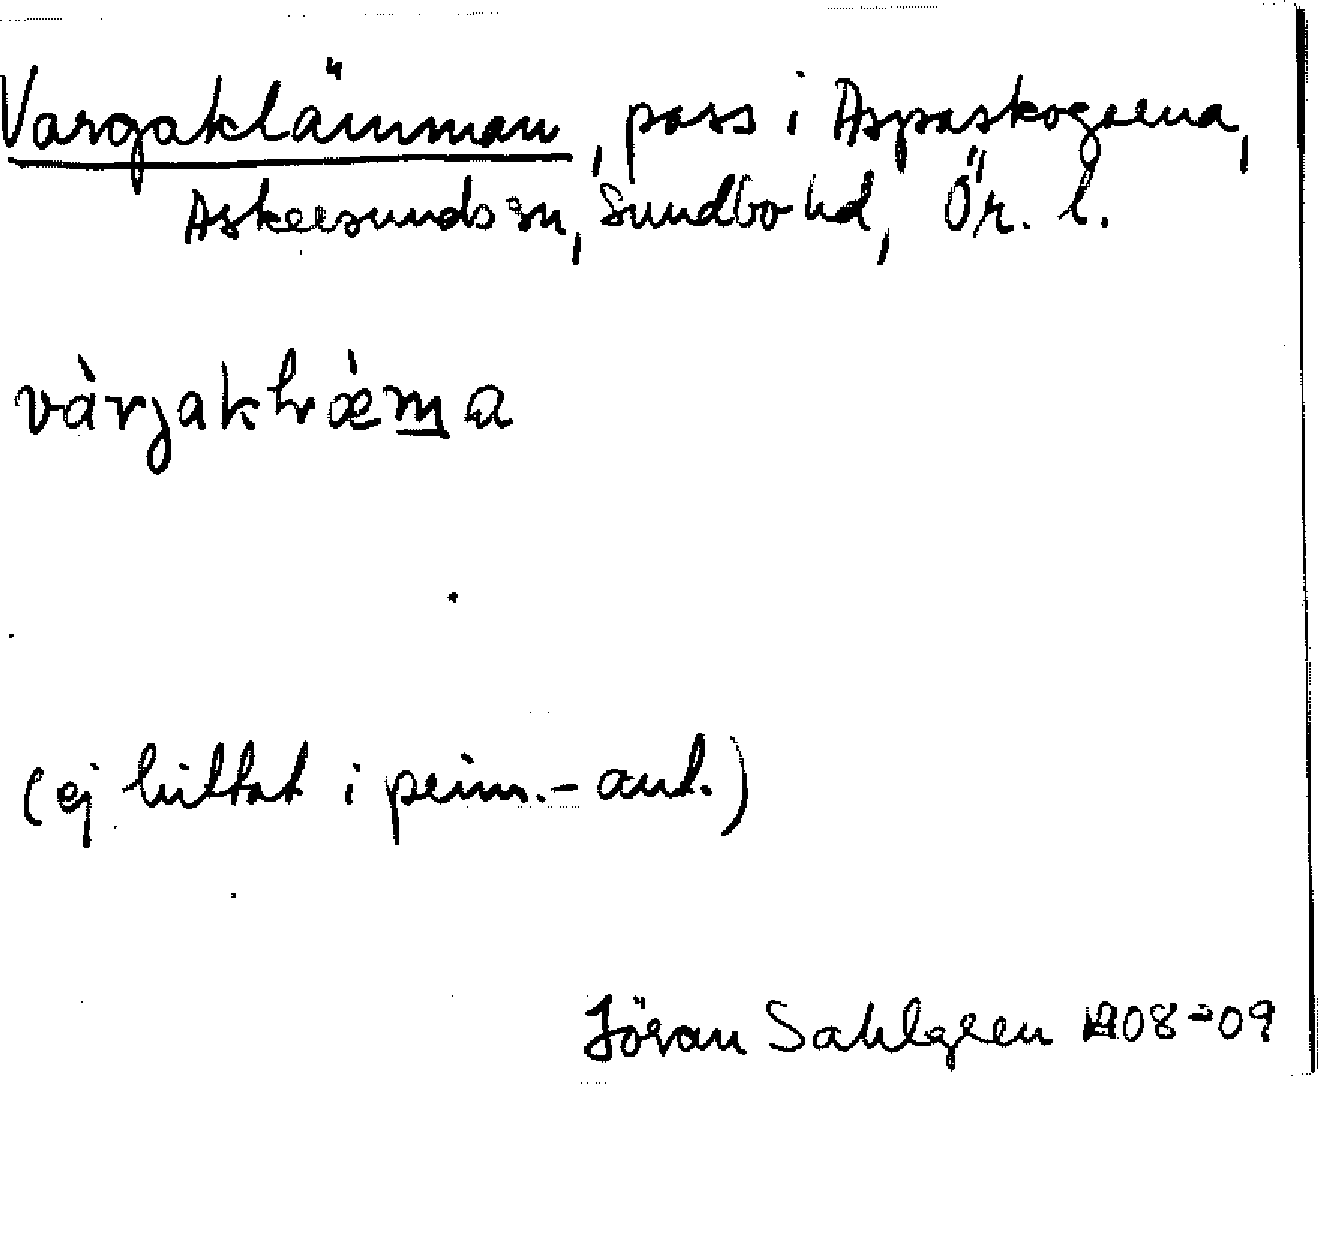 Vargaklämman, pass i Aspaskogarna,
Askersunds sn, Sundbo hd, Ör. l.
vàrgaklǽma
(ej hittat i prim.-ant.)
Jöran Sahlgren 1908-09